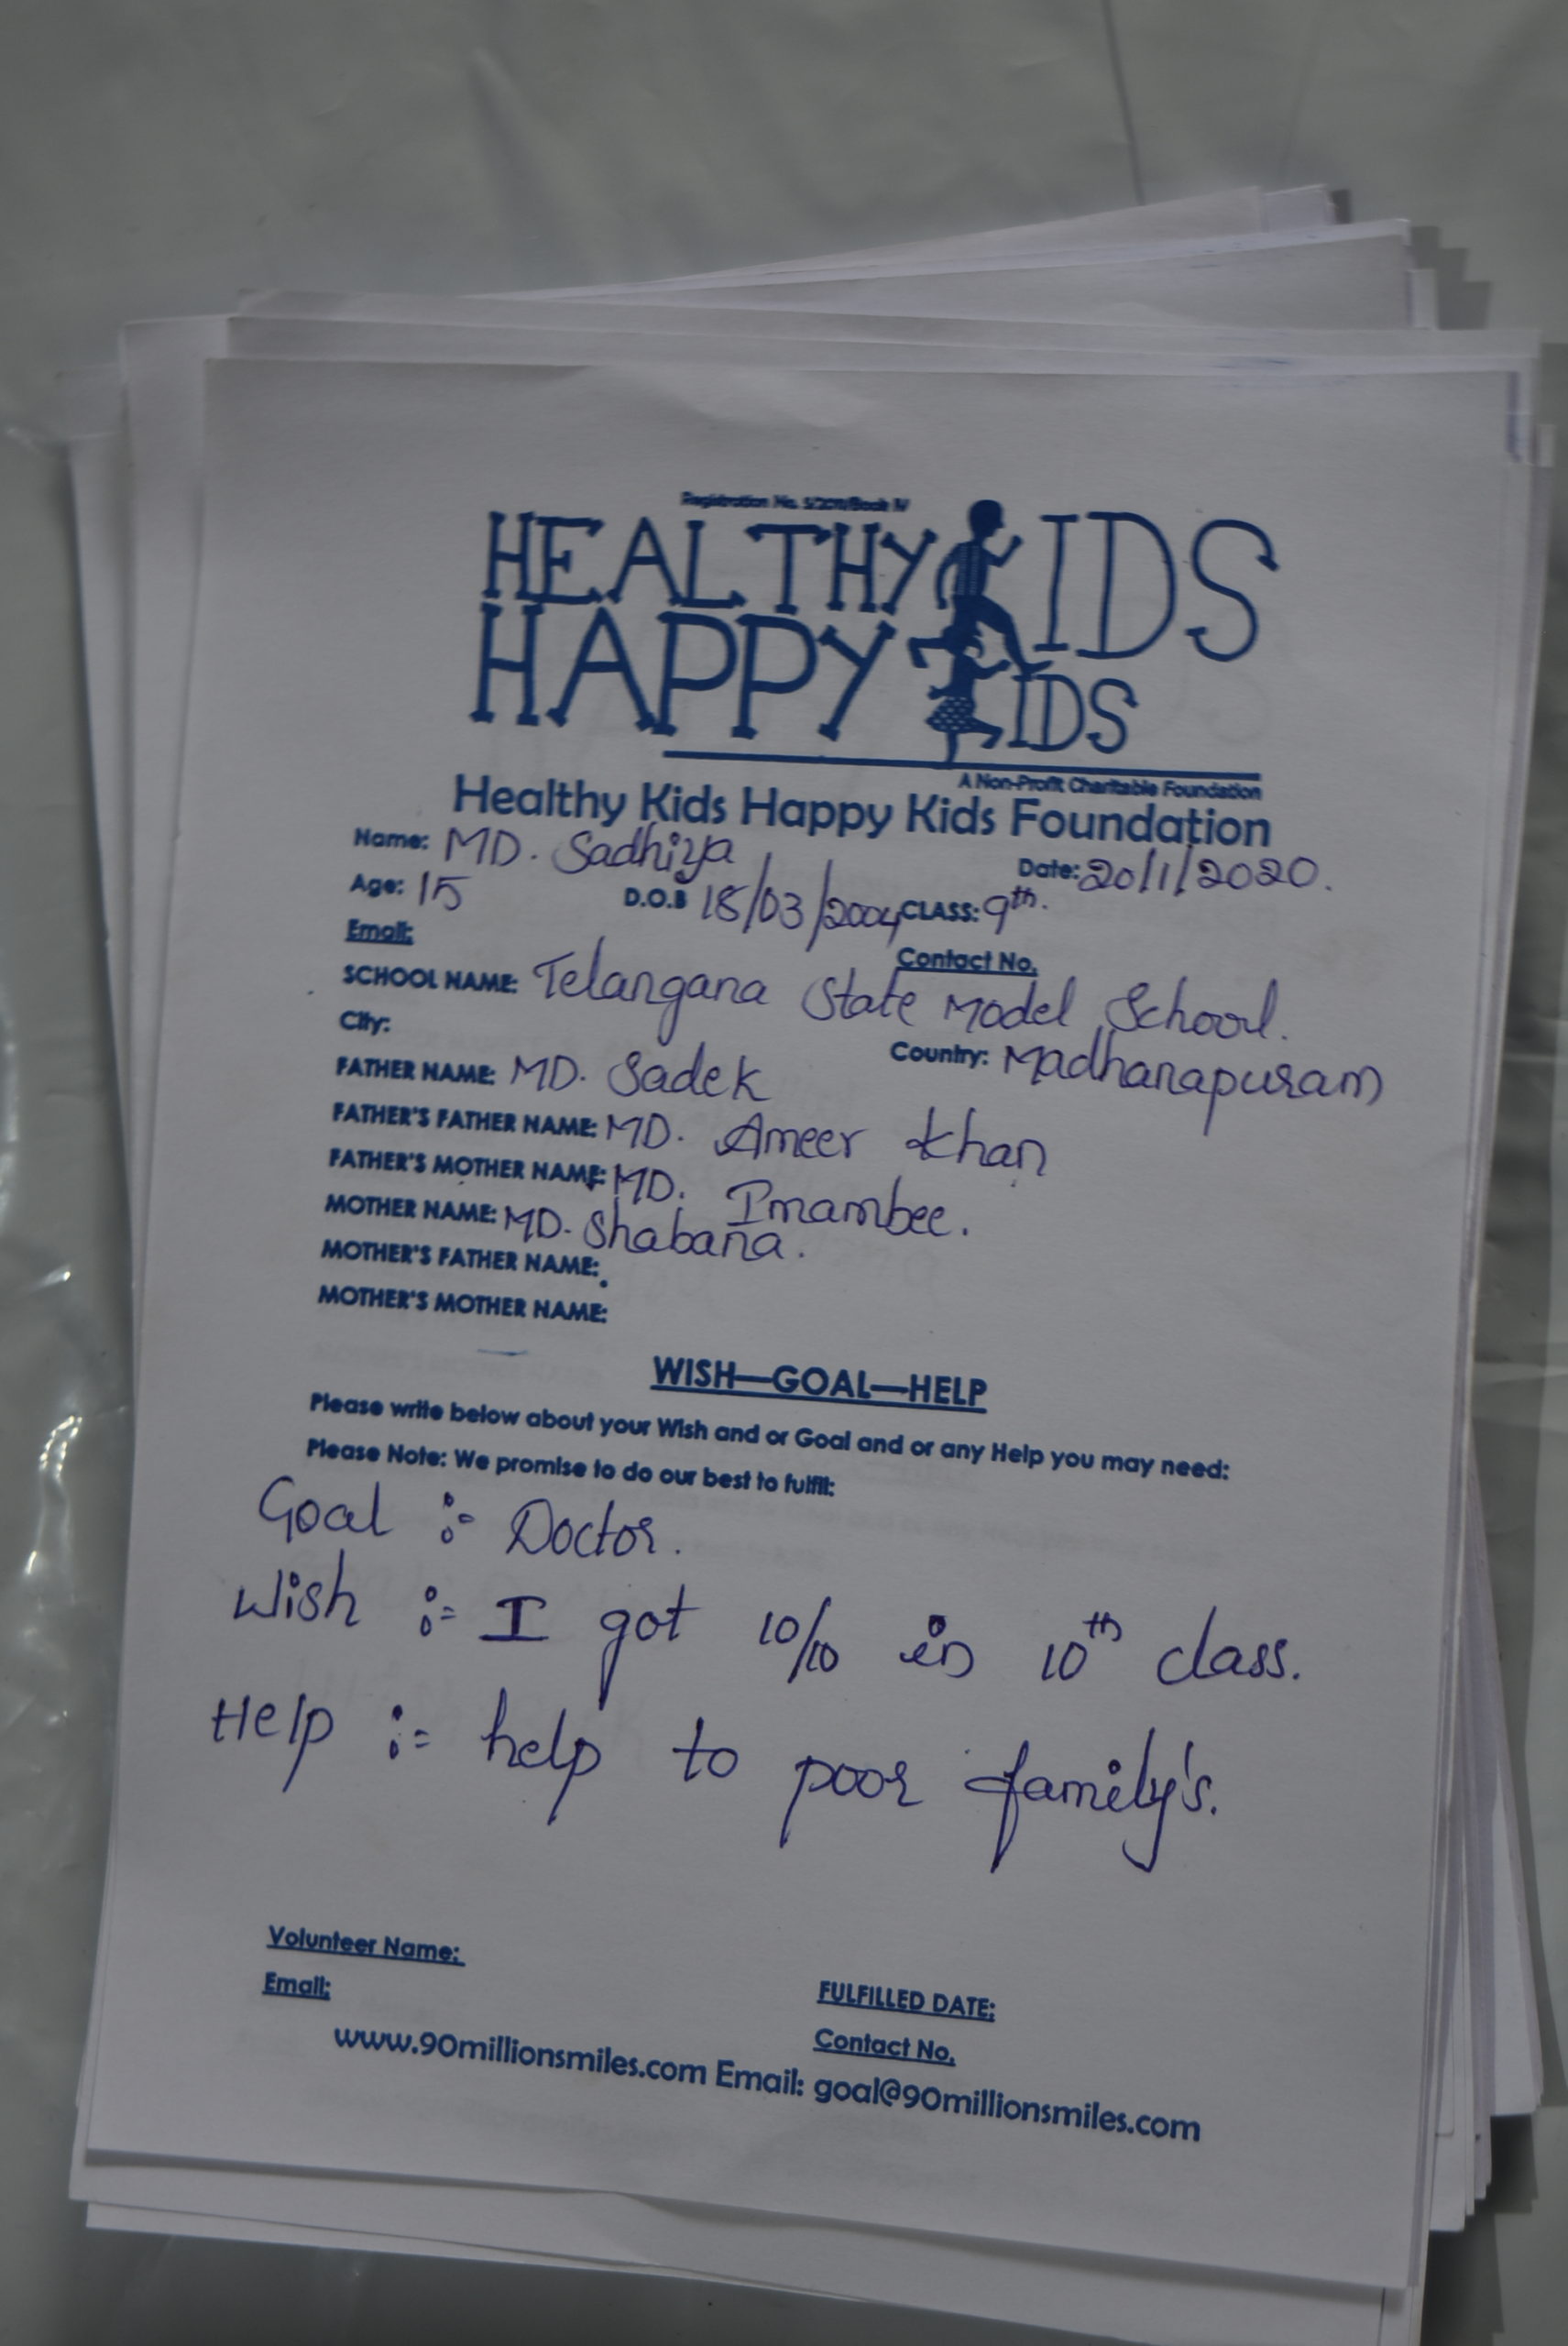 Registration No. 5/2011/Book IV
HEALTHY KIDS
HAPPY KIDS
A Non-Profit Charitable Foundation
Healthy Kids Happy Kids Foundation
Name: MD. Sadhiya Date: 20/1/2020.
Age: 15 D.O.B 18/03/2004 CLASS: 9th.
Email: Contact No.
SCHOOL NAME: Telangana State Model School.
City: Country: Madhanapuram
FATHER NAME: MD. Sadek
FATHER'S FATHER NAME: MD. Ameer Khan
FATHER'S MOTHER NAME: MD. Imambee.
MOTHER NAME: MD. Shabana.
MOTHER'S FATHER NAME:
MOTHER'S MOTHER NAME:
WISH—GOAL—HELP
Please write below about your Wish and or Goal and or any Help you may need:
Please Note: We promise to do our best to fulfil:
Goal :- Doctor.
Wish :- I got 10/10 in 10th class.
Help :- help to poor family's.
Volunteer Name:
Email: FULFILLED DATE:
Contact No.
www.90millionsmiles.com Email: goal@90millionsmiles.com